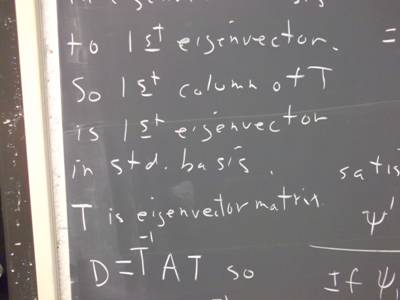 to 1st eigenvector.
So 1st column of T
is 1st eigenvector
in std. basis.
T is eigenvector matrix
D = T⁻¹ A T so
=
satis
ψ'
If ψ